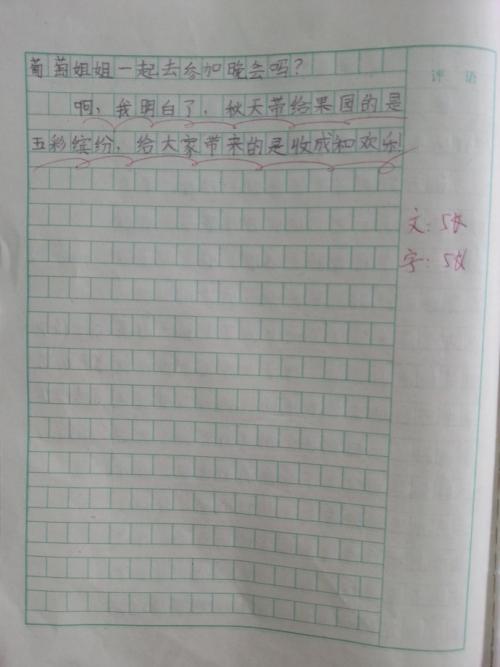 葡萄姐姐一起去参加晚会吗？
啊，我明白了，秋天带给果园的是
五彩缤纷，给大家带来的是收成和欢乐！
评语
文：5☆
字：5☆